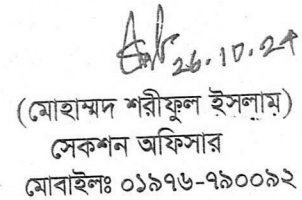 26.10.24
(মোহাম্মদ শরীফুল ইসলাম)
সেকশন অফিসার
মোবাইলঃ ০১৯৭৬-৭৯০০৯২